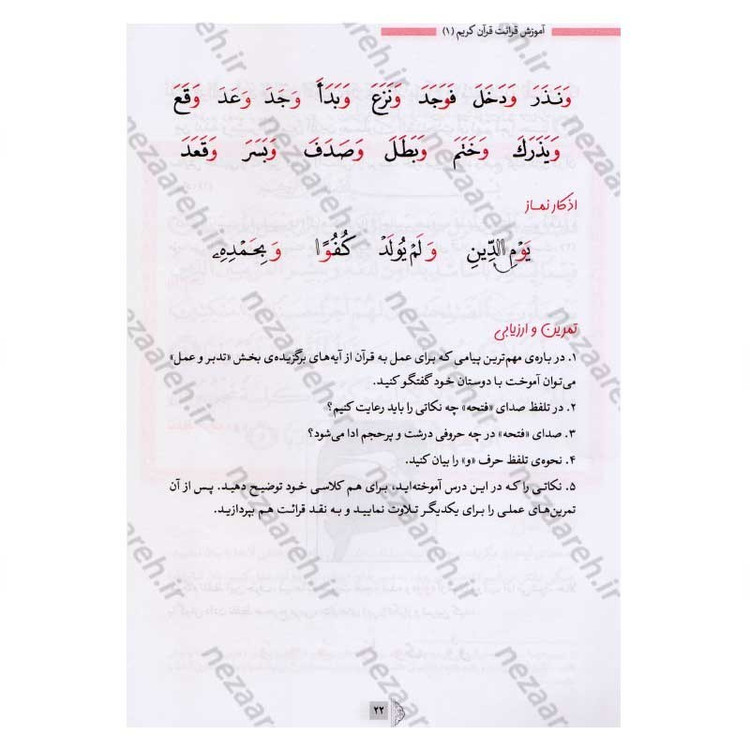 آموزش قرائت قرآن کریم (۱)
وَنَذَرَ وَدَخَلَ فَوَجَدَ وَنَزَعَ وَبَدَأَ وَجَدَ وَعَدَ وَقَعَ
وَيَذَرَكَ وَخَتَمَ وَبَطَلَ وَصَدَفَ وَبَسَرَ وَقَعَدَ
اذکار نماز
يَوْمِ الدِّينِ وَلَمْ يُولَدْ كُفُوًا وَبِحَمْدِهِ
تمرین و ارزیابی
۱. در باره‌ی مهم‌ترین پیامی که برای عمل به قرآن از آیه‌های برگزیده‌ی بخش «تدبر و عمل»
می‌توان آموخت با دوستان خود گفتگو کنید.
۲. در تلفظ صدای «فتحه» چه نکاتی را باید رعایت کنیم؟
۳. صدای «فتحه» در چه حروفی درشت و پرحجم ادا می‌شود؟
۴. نحوه‌ی تلفظ حرف «و» را بیان کنید.
۵. نکاتی را که در این درس آموخته‌اید، برای هم کلاسی خود توضیح دهید. پس از آن
تمرین‌های عملی را برای یکدیگر تلاوت نمایید و به نقد قرائت هم بپردازید.
۲۲
nezaareh.ir
nezaareh.ir
nezaareh.ir
nezaareh.ir
nezaareh.ir
nezaareh.ir
nezaareh.ir
nezaareh.ir